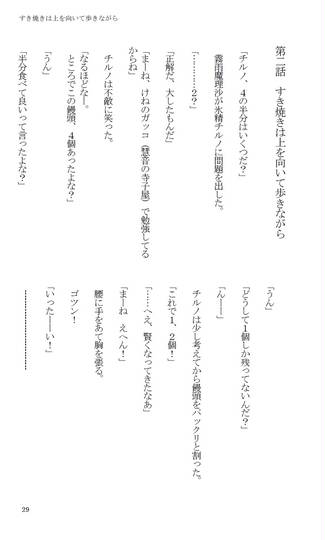 すき焼きは上を向いて歩きながら
第二話　すき焼きは上を向いて歩きながら
「チルノ、４の半分はいくつだ？」
霧雨魔理沙が氷精チルノに問題を出した。
「…………２？」
「正解だ、大したもんだ」
「まーね、けねのガッコ（慧音の寺子屋）で勉強してる
からね」
チルノは不敵に笑った。
「なるほどなー。
ところでこの饅頭、４個あったよな？」
「うん」
「半分食べて良いって言ったよな？」
「うん」
「どうして１個しか残ってないんだ？」
「んー――」
チルノは少し考えてから饅頭をパックリと割った。
「これで１、２個！」
「……へえ、賢くなってきたなあ」
「まーね　えへん！」
腰に手をあて胸を張る。
ゴツン！
「いったーーい！」
29